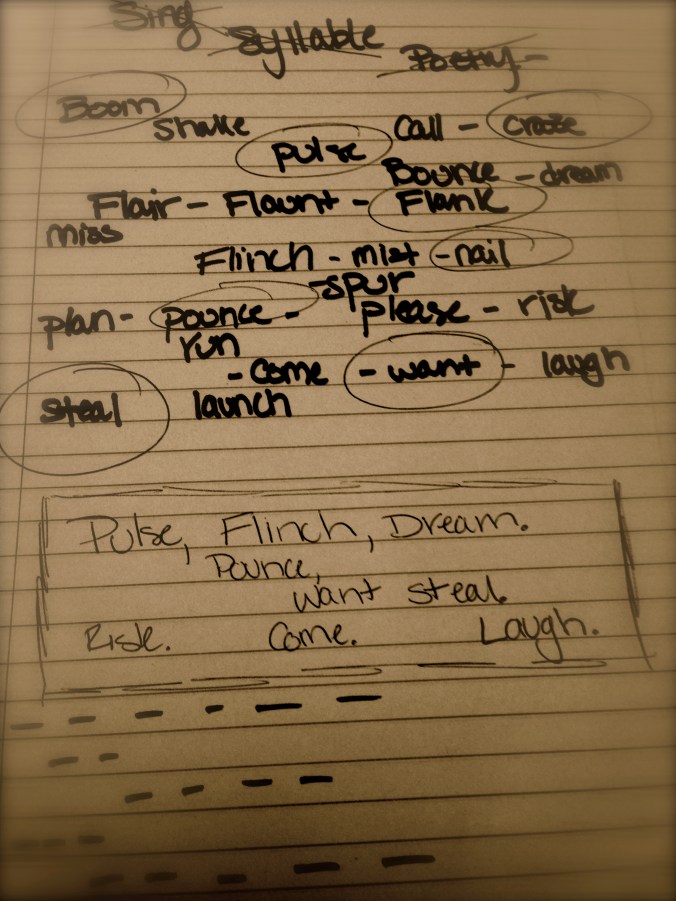 Sing
Syllable
Poetry-
Boom
Shake
pulse
Call - craze
Bounce - dream
Flair - Flaunt - Flank
miss
Flinch - mist - nail
-spur
plan - pounce - please - risk
run
- come - want - laugh
steal launch
Pulse, Flinch, Dream.
Pounce,
want steal.
Risk. Come. Laugh.